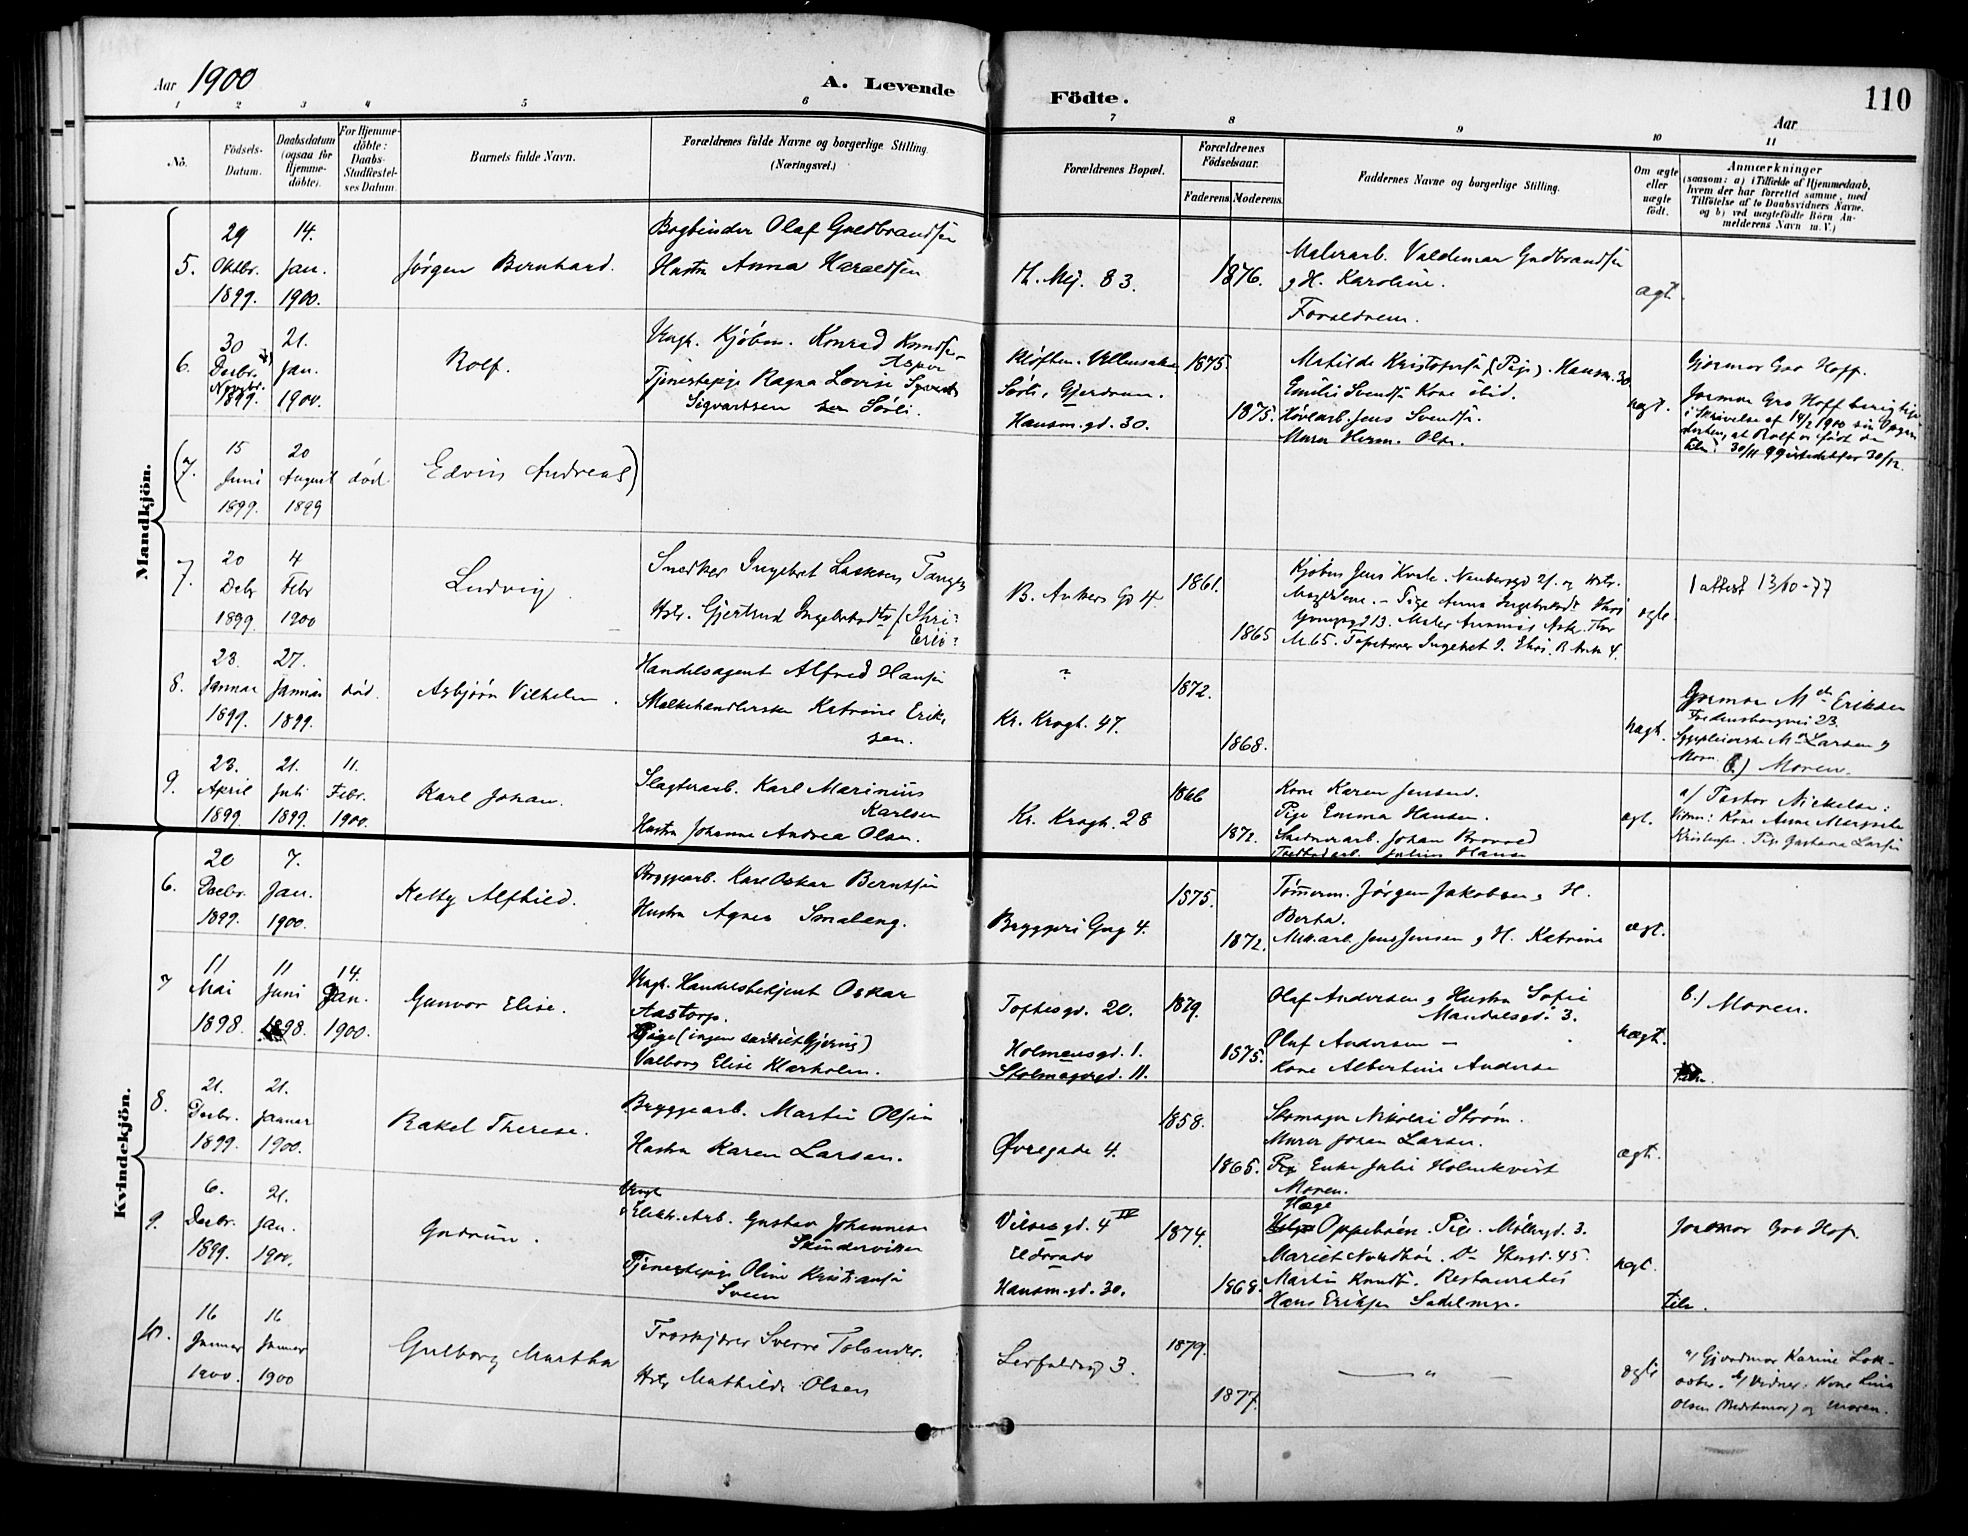 Aar 1900
A. Levende Födte.
110
Aar
1 2 3 4 5 6 7 8 9 10 11
No.
Födsels-
Datum.
Daabsdatum
(ogsaa for
Hjemme-
döbte).
For Hjemme-
döbte:
Daabs-
Stadfæstel-
ses Datum.
Barnets fulde Navn.
Forældrenes fulde Navne og borgerlige Stilling
(Næringsvei.)
Forældrenes Bopæl.
Forældrenes
Födselsaar.
Faderens. Moderens.
Faddernes Navne og borgerlige Stilling.
Om ægte
eller
uægte
født.
Anmærkninger
(saasom: a) i Tilfælde af Hjemmedaab,
hvem der har forrettet samme, med
Tilföielse af to Daabsvidners Navne,
og b) ved uægtefödte Börn An-
melderens Navn m. V.)
Mandkjön.
5.
29
Oktbr.
1899.
14.
Jan.
1900.
Jørgen Bernhard.
Bogbinder Olaf Gudbrandsen
Hustru Anna Haraldsen
Th. Mej. 83.
1876.
Malerarb. Valdemar Gudbrandsen
og H. Karoline.
Forældrene.
ægt.
6.
30
Decbr.
Novbr.
1899.
21.
Jan.
1900.
Rolf.
Ungk. Kjøbm. Konrad Knudsen
Asper
Tjenestepige Ragna Lovise
Sigvartsen Sørli.
Kløften. Ullensaker
Sørli, Gjerdrum.
Hausm.gd. 30.
1875.
1875.
Matilde Kristofersen (Pige). Hausm. 30
Emilie Svendsen Kone ibid.
Høvlarb. Jens Svendsen.
Murer Herm. Olsen.
uægt.
Gjormor Gro Hoff.
Jormor Gro Hoff
i Skrivelse af 14/2 1900 sin
at Rolf er født den
30/11 99 istedetfor 30/12.
(7.
15
Juni
1899.
20
August
1899
død
Edvin Andreas)
7.
20
Debr
1899.
4
Febr
1900
Ludvig.
Snedker Ingebret Larsen Tangen
Hstr. Gjertrud
B. Ankers Gd 4.
1861.
1865
Kjøbm Jens
Magdalene. - Pige Anna
M. 65. Tapetserer Ingebret
ægte
1 attest 13/10-77
8.
23.
Januar
1899.
27.
Januar
1899.
død.
Asbjørn Vilhelm.
Handelsagent Alfred Hansen
Melkehandlerske Katrine Erik-
sen.
"
Kr. Krogh. 47.
1872.
1868.
uægt.
Jormor M Eriksen
Fredensborgvei 23.
Larsen og
Moren.
b.) Moren.
9.
23.
April
1899.
21.
Juli
1899.
11.
Febr.
1900.
Karl Johan.
Slagterarb. Karl Marinius
Karlsen
Hustru Johanne Andrea Olsen.
Kr. Krogh. 28
1866
1872.
Kone Karen Jensen.
Pige Emma Hansen.
Johan
Julius Hansen
ægt.
a/ Pastor Nickelsen:
Vidner: Kone Anne Margrete
Kristensen. Pige Gustava Larsen
Kvindekjön.
6.
20
Decbr.
1899.
7.
Jan.
1900.
Ketty Alfhild.
Bryggearb. Karl Oskar Berntsen
Hustru Agnes Smalang.
Bryggeri Gag 4.
1875.
1872.
Tømmerm. Jørgen Jakobsen og H.
Berta.
Mek.arb. Jens Jensen og H. Katrine
ægt.
7
11
Mai
1898.
11
Juni
1898.
14.
Jan.
1900.
Gunvor Elise.
Ungk. Handelsbetjent Oskar
Aastorp.
Pige (ingen særskilt Gjerning)
Valborg Elise Klarholm.
Toftesgd. 20.
Holmensgd. 1.
Stolmagergd. 11.
1879.
1875.
Olaf Andersen og Hustru Sofie
Mandalsgd. 3.
Oluf Andersen -
Kone Albertine Andersen
uægt.
b.) Moren.
8.
21.
Decbr.
1899.
21.
Januar
1900.
Rakel Therese.
Bryggearb. Martin Olsen
Hustru Karen Larsen.
Øvregade 4.
1858.
1865.
Skomager Nikolai Strøm.
Murer Johan Larsen.
Enke Julie Holmkvist
Moren.
ægt.
9.
6.
Decbr.
1899.
21.
Jan.
1900.
Gudrun.
Ungk.
Elektr. Arb. Gustav Johannesen
Skinderviken
Tjenestepige Oline Kristiansen
Sveen
Vilsesgd. 4 IV
Eldorado
Hausm.gd. 30.
1874.
1868.
Hæge
Oppebøen. Pige. Møllergd. 3.
Mariet Nordbøe. Do Storgd. 45.
Martin Knudsen. Restauratør
Hans Eriksen Sadelmager.
uægt.
Jordmor Gro Hof.
tilv.
10.
16
Januar
1900.
16
Januar
1900
Gulborg Martha
Træskjærer Sverre Tolander.
Hstr Mathilde Olsen
Leirfaldsg 3.
1879.
1877.
"
ægte
a/ Gjordmor Karine
b/ Vidner: Kone Lina
Olsen (Bedstemor) og Moren.